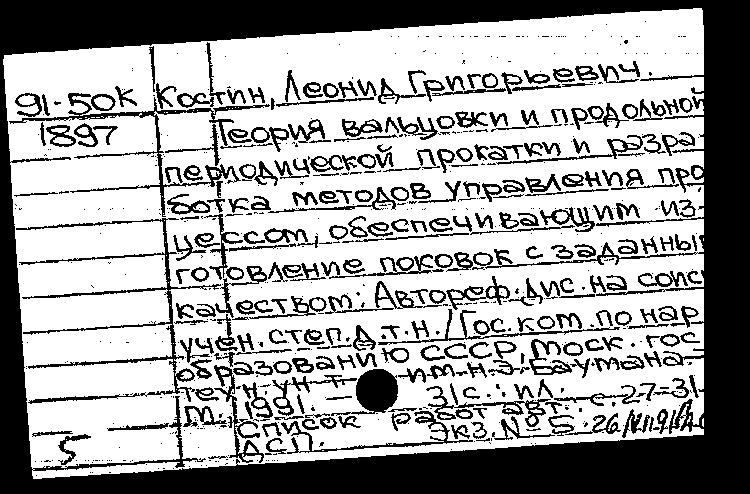 91-50К Костин, Леонид Григорьевич.
1897 Теория вальцовки и продольной
периодической прокатки и разра-
ботка методов управления про
цессом, обеспечивающим из-
готовление поковок с заданны
качеством: Автореф. дис. на соиск
учен. степ. д.т.н. / Гос. ком. по нар
образованию СССР, Моск. гос
техн. ун-т им. Н.Э. Баумана.-
М., 1991. - 31с.: ил.
Список работ авт.: с.27-31
5 ДСП. Экз. № 5